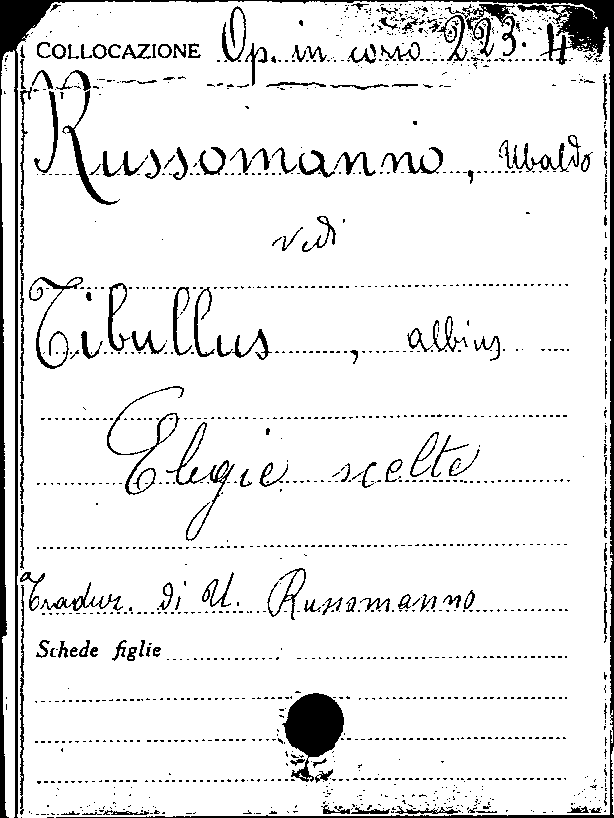 COLLOCAZIONE Op. in corso 223. 4
Russomanno, Ubaldo
vedi
Tibullus, Albius
Elegie scelte
Tradur. di U. Russomanno
Schede figlie